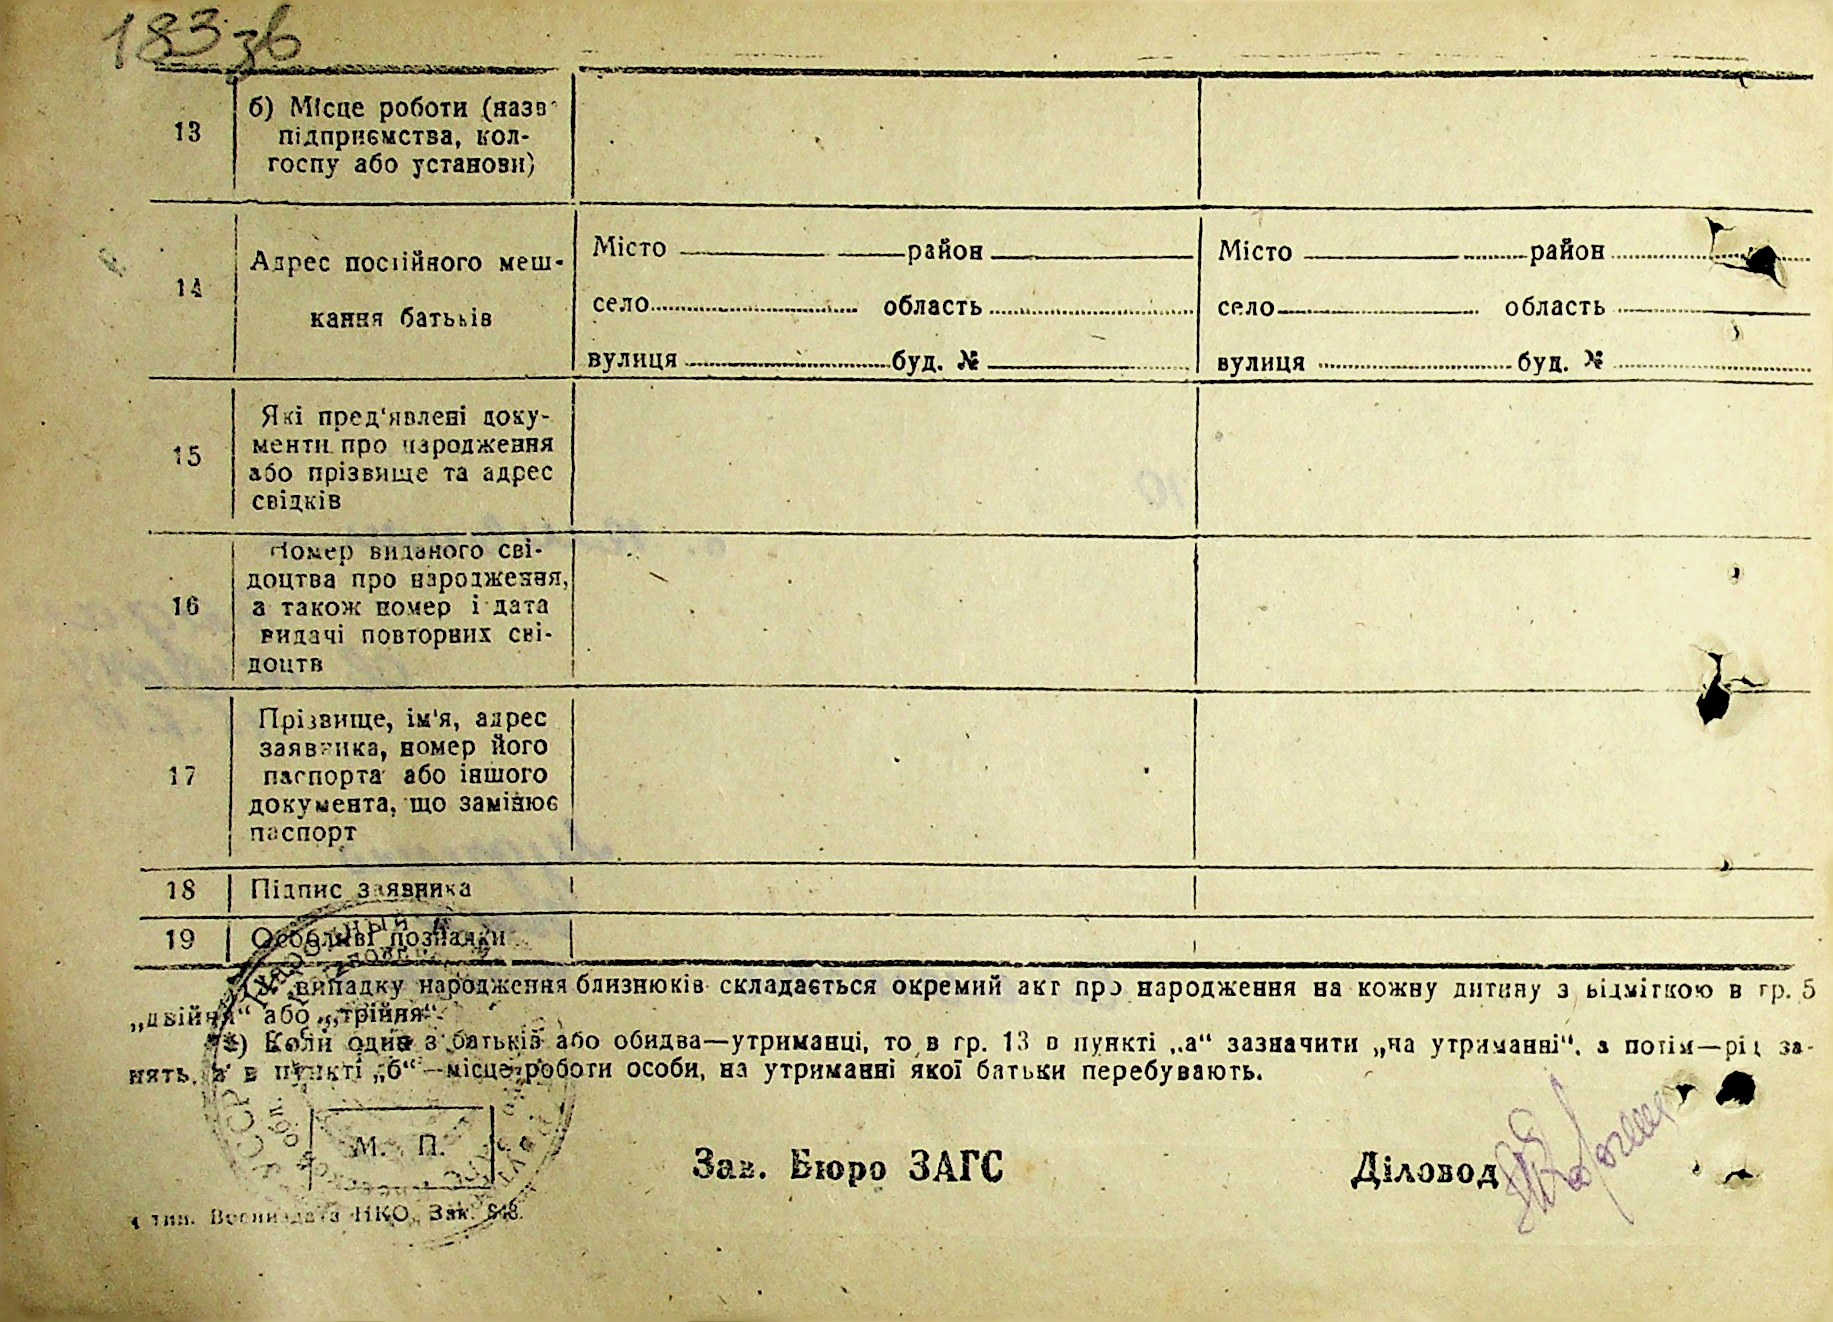 183 зв
13
б) Місце роботи (назв
підприємства, кол-
госпу або установи)
14
Адрес постійного меш-
кання батьків
Місто район
село область
вулиця буд. №
Місто район
село область
вулиця буд. №
15
Які пред'явлені доку-
менти про народження
або прізвище та адрес
свідків
16
Номер виданого сві-
доцтва про народження,
а також номер і дата
видачі повторних сві-
доцтв
17
Прізвище, ім'я, адрес
заявника, номер його
паспорта або іншого
документа, що замінює
паспорт
18 Підпис заявника
19 Особливі познаки
випадку народження близнюків складається окремий акт про народження на кожну дитину з відміткою в гр. 5
„двійня“ або „трійня“.
2) Коли один з батьків або обидва—утриманці, то в гр. 13 в пункті „а“ зазначити „на утриманні“, а потім—рід за-
нять, а в пункті „б“—місце роботи особи, на утриманні якої батьки перебувають.
М. П.
Зав. Бюро ЗАГС
Діловод
тип. Воениздата НКО, Зак. 648.